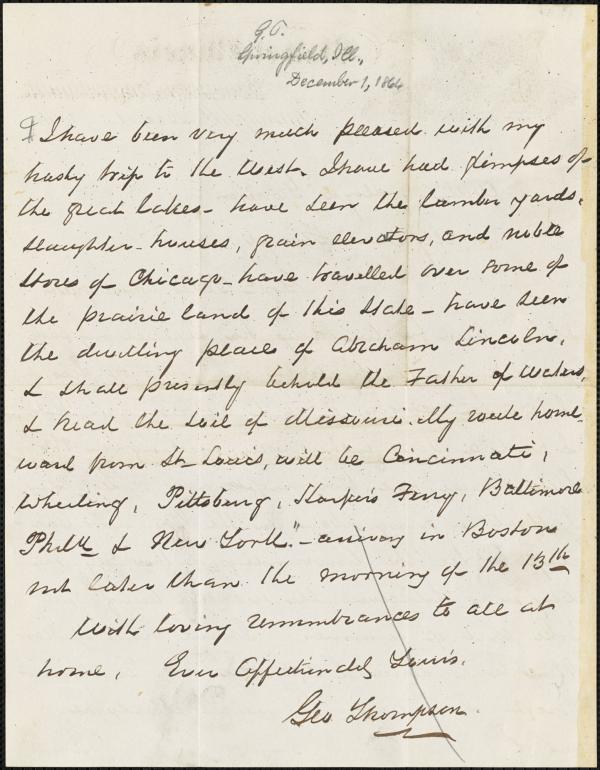 G.T.
Springfield, Ill.,
December 1, 1864
I have been very much pleased with my
hasty trip to the West. I have had glimpses of
the great lakes - have seen the lumber yards,
slaughter-houses, grain elevators, and noble
stores of Chicago - have travelled over some of
the prairie land of this State - have seen
the dwelling place of Abraham Lincoln,
& shall presently behold the Father of Waters,
& tread the soil of Missouri. My route home-
ward from St Louis, will be Cincinnati,
Wheeling, Pittsburg, Harper's Ferry, Baltimore
Phila & New York" - arriving in Boston
not later than the morning of the 13th
With loving remembrances to all at
home, Ever Affectionately Yours,
Geo Thompson